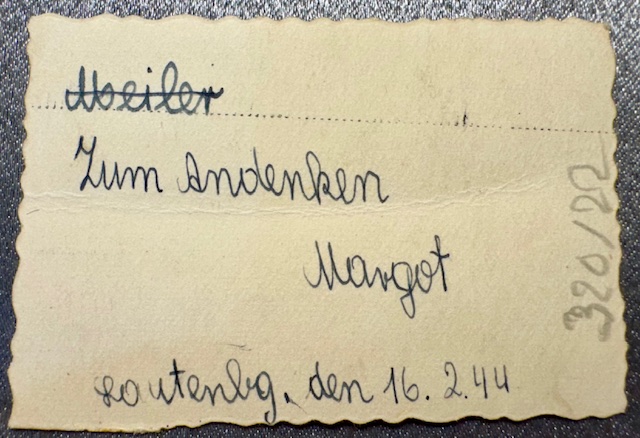 Meiler
Zum Andenken
Margot
Lautenbg. den 16. 2. 44
320/22